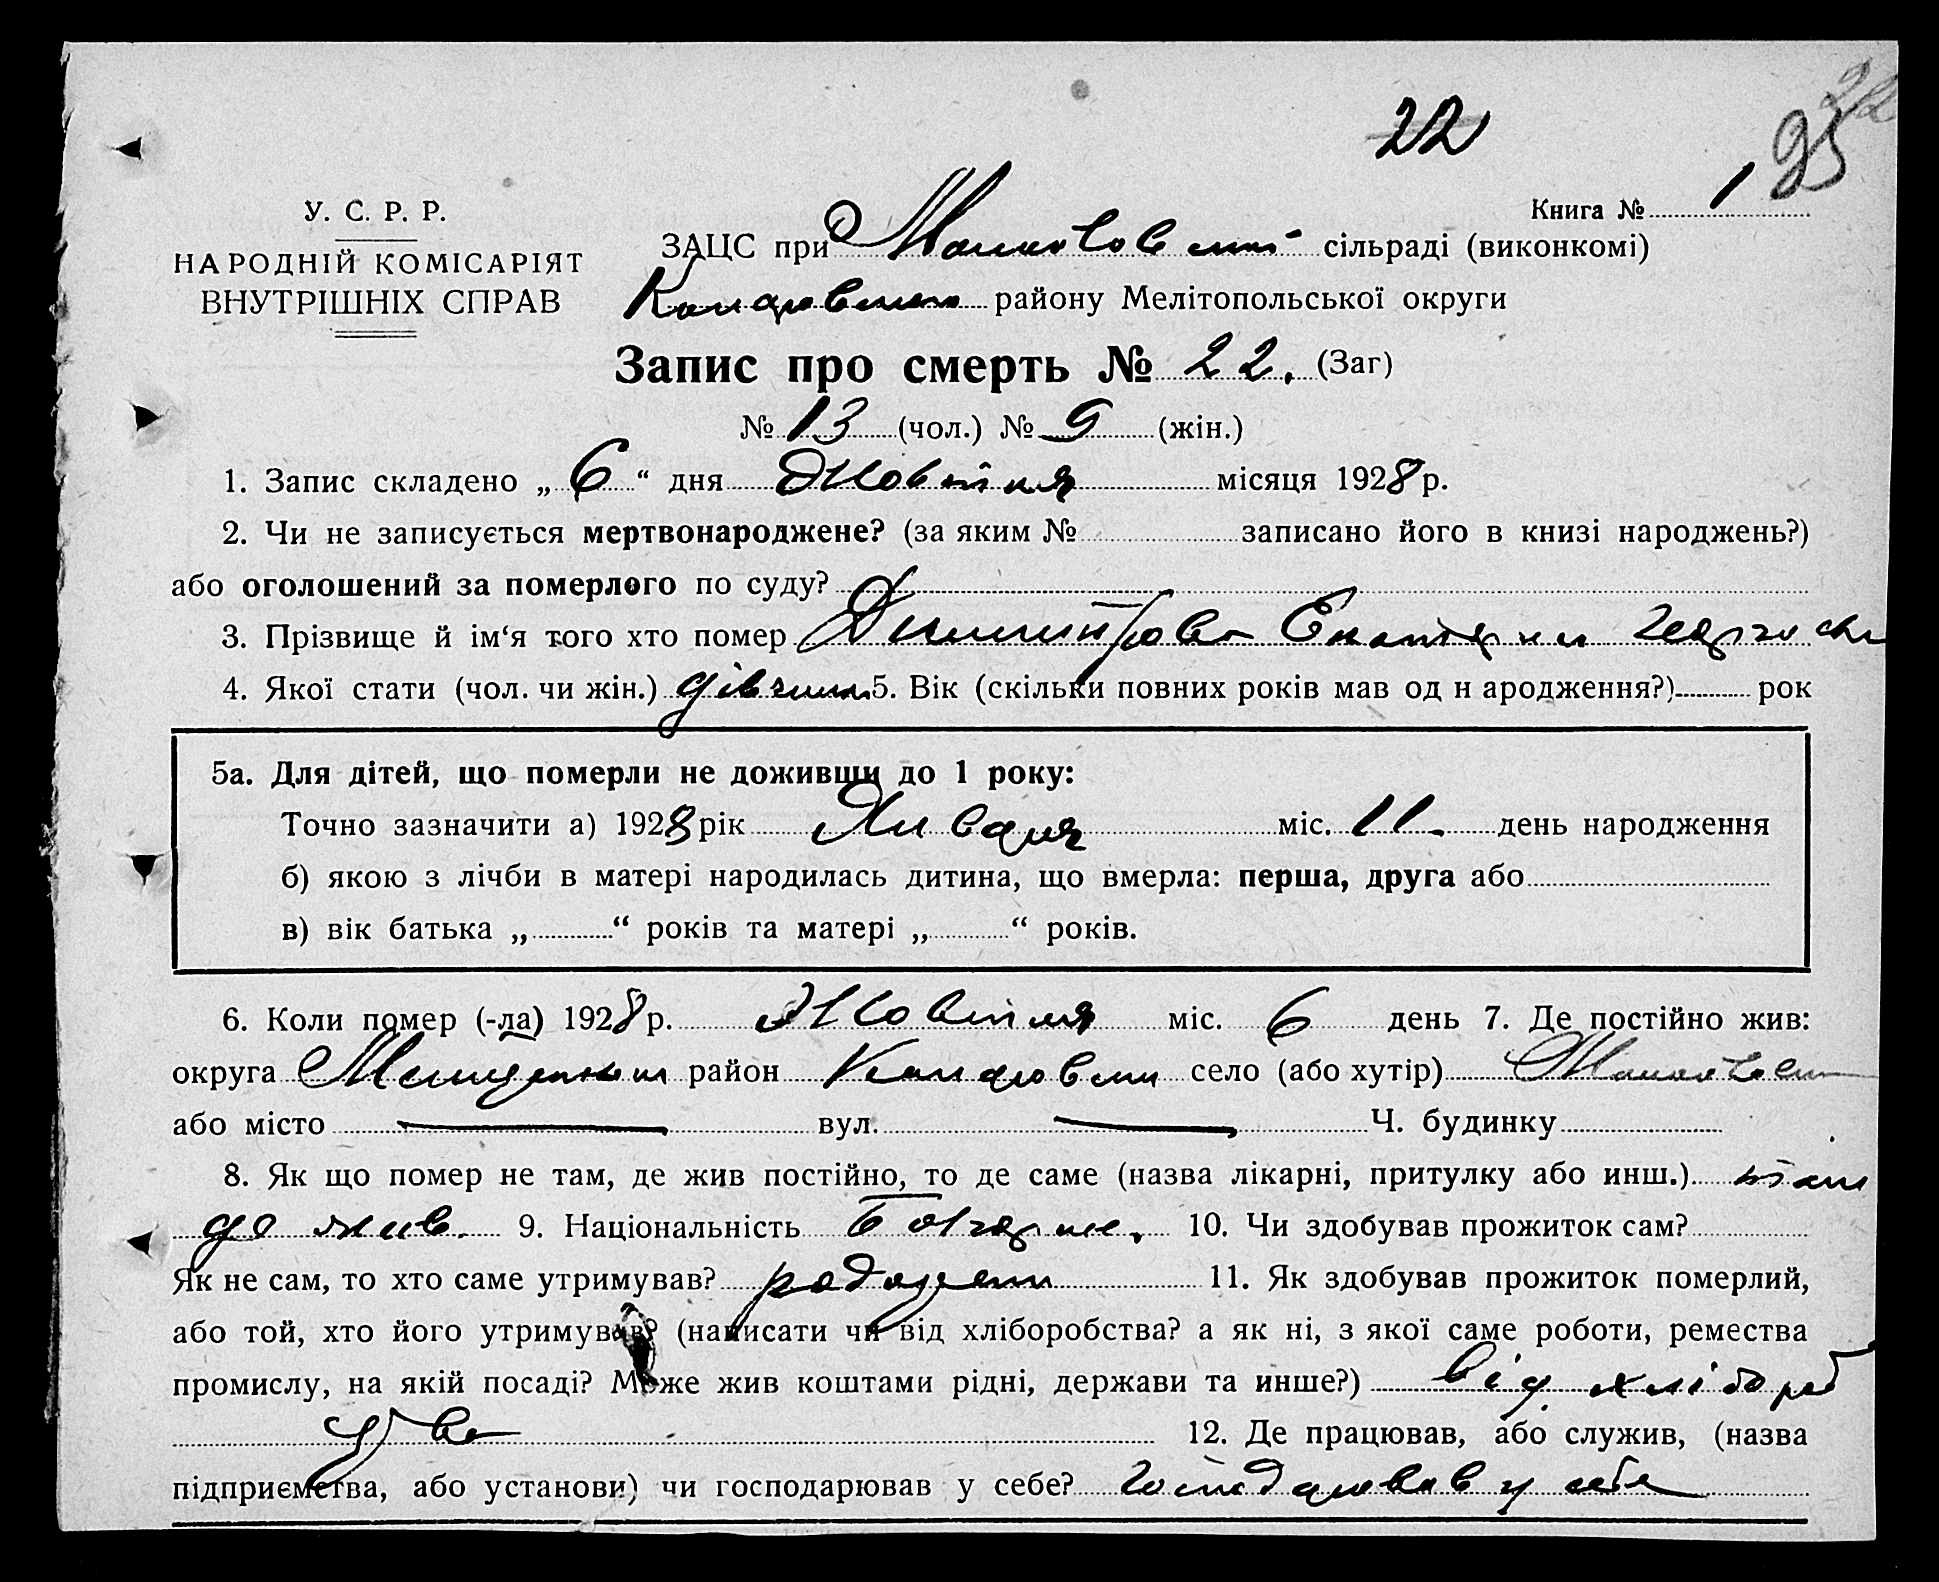 22
22
95
У. С. Р. Р.
НАРОДНІЙ КОМІСАРІЯТ
ВНУТРІШНІХ СПРАВ
Книга № 1
ЗАЦС при сільраді (виконкомі)
району Мелітопольської округи
Запис про смерть № 22. (Заг)
№ 13 (чол.) № 9 (жін.)
1. Запис складено „ 6 “ дня Жовтня місяця 1928 р.
2. Чи не записується мертвонароджене? (за яким № записано його в книзі народжень?)
або оголошений за померлого по суду?
3. Прізвище й ім‘я того хто помер Димитрова Екатерина
4. Якої стати (чол. чи жін.) дівчина 5. Вік (скільки повних років мав од н ародження?) рок
5а. Для дітей, що померли не доживши до 1 року:
Точно зазначити а) 1928 рік Января міс. 11. день народження
б) якою з лічби в матері народилась дитина, що вмерла: перша, друга або
в) вік батька „ “ років та матері „ “ років.
6. Коли помер (-ла) 1928 р. Жовтня міс. 6 день 7. Де постійно жив:
округа район село (або хутір)
або місто — вул. — Ч. будинку
8. Як що помер не там, де жив постійно, то де саме (назва лікарні, притулку або инш.) там
де жив. 9. Національність 10. Чи здобував прожиток сам?
Як не сам, то хто саме утримував? родители 11. Як здобував прожиток померлий,
або той, хто його утримував? (написати чи від хліборобства? а як ні, з якої саме роботи, ремества
промислу, на якій посаді? Може жив коштами рідні, держави та инше?) від хлібороб
ства 12. Де працював, або служив, (назва
підприємства, або установи) чи господарював у себе? господарював у себе